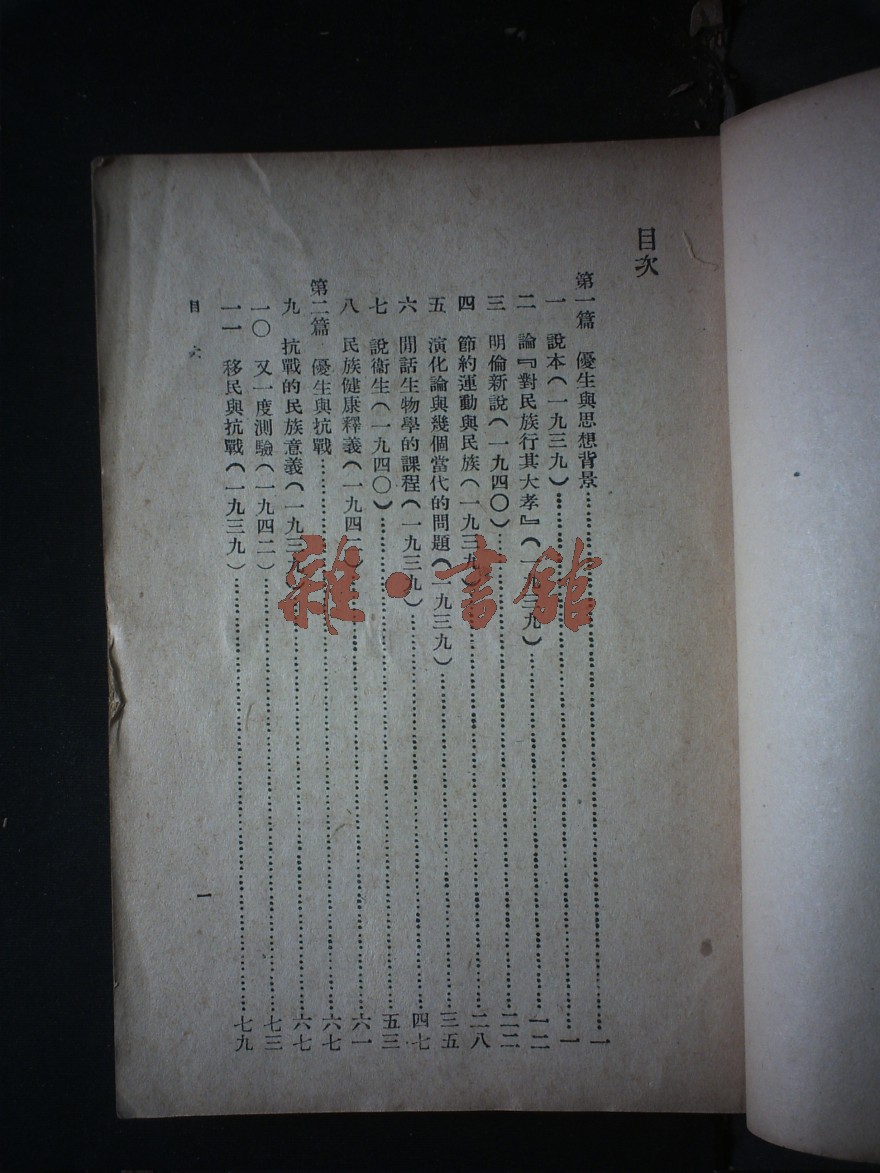 目次
第一篇 優生與思想背景……一
一 說本(一九三九)……一
二 論『對民族行其大孝』(一九三九)……一二
三 明倫新說(一九四〇)……二二
四 節約運動與民族(一九三九)……二八
五 演化論與幾個當代的問題(一九三九)……三五
六 閒話生物學的課程(一九三九)……四七
七 說衞生(一九四〇)……五三
八 民族健康釋義(一九四一)……六一
第二篇 優生與抗戰……六七
九 抗戰的民族意義(一九三九)……六七
一〇 又一度測驗(一九四二)……七三
一一 移民與抗戰(一九三九)……七九
目 次
一
雜·書館